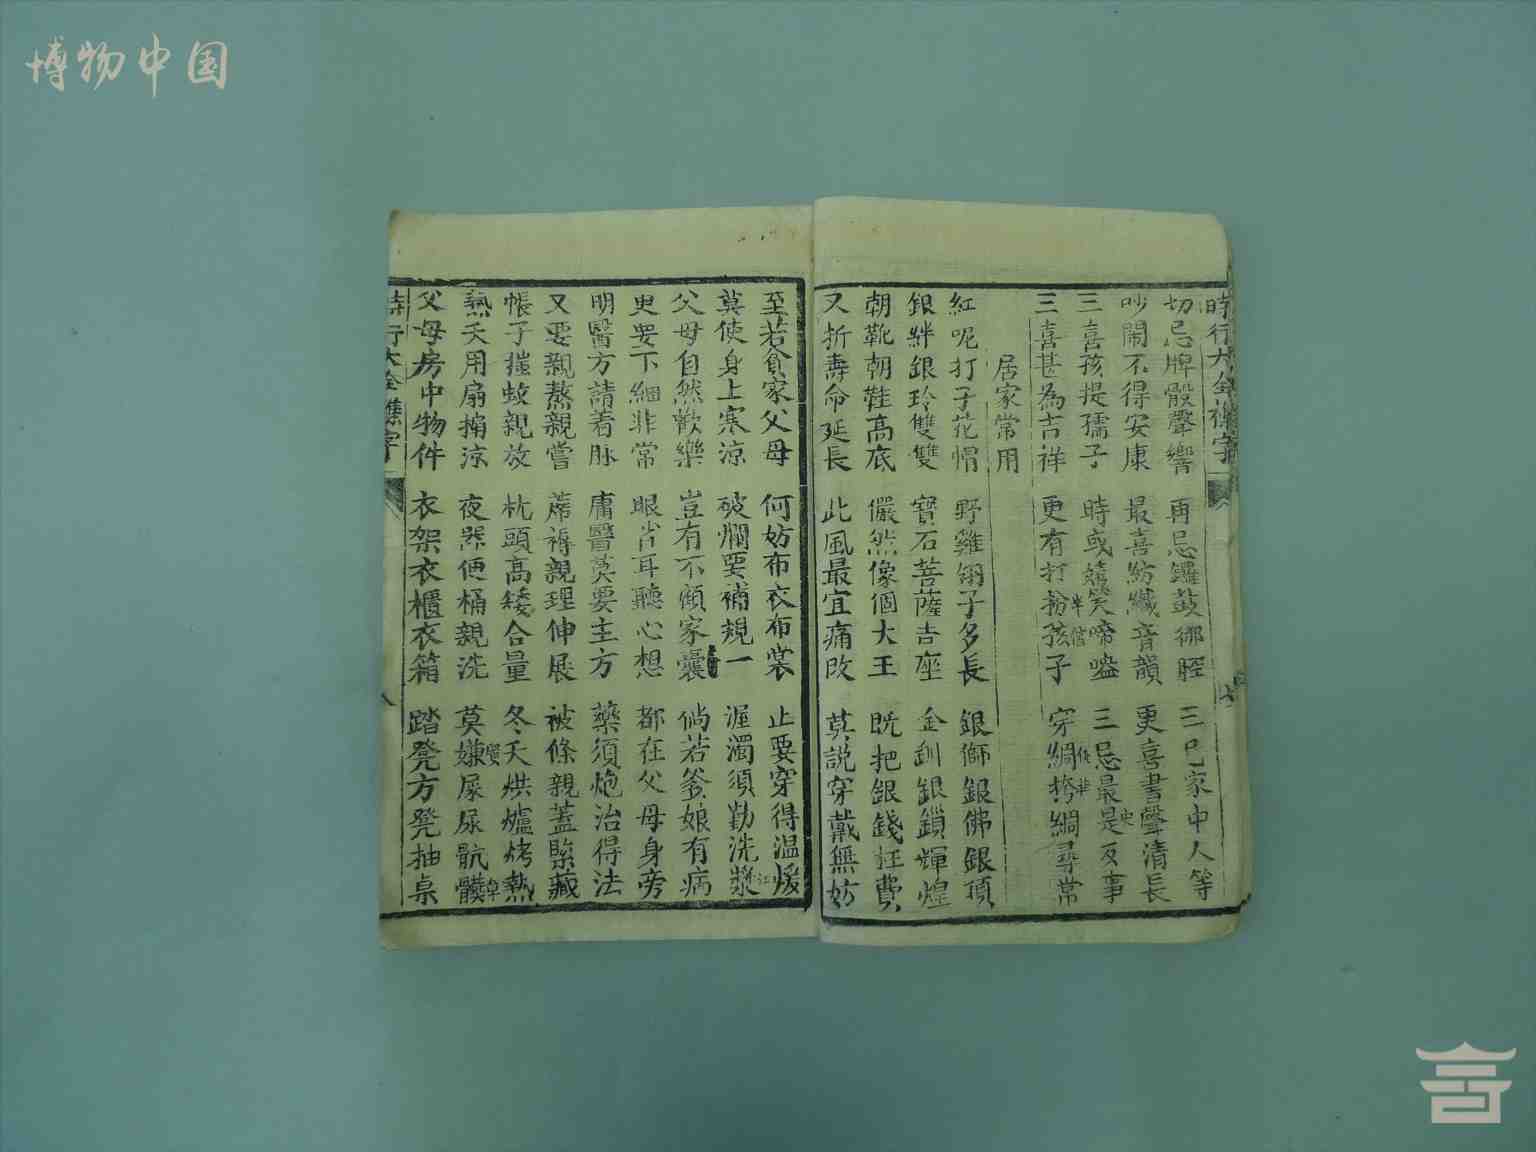 博物中国
時行大全雜字
切忌牌骰聲響 再忌鑼鼓
三 家中人等
吵鬧不得安康 最喜紡織音韻 更喜書聲清長
三喜孩提孺子 時或嬉笑啼嗑 三忌最是反事
三喜甚為吉祥 更有打扮孩子 穿綢 綢尋常
居家常用
紅呢打子花帽 野雞翎子多長 銀獅銀佛銀頂
銀絆銀玲雙雙 寶石菩薩吉座 金釧銀鎖輝煌
朝靴朝鞋高底 儼然像個大王 既把銀錢枉費
又折壽命延長 此風最宜痛改 莫説穿戴無妨
至若貧家父母 何妨布衣布裳 止要穿得温煖
莫使身上寒涼 破爛要補規一 渥濁須勤洗漿
父母自然歡樂 豈有不顧家囊 倘若爹娘有病
更要下細非常 眼看耳聽心想 都在父母身旁
明醫方請着脉 庸醫莫要主方 藥須炮治得法
又要親熬親嘗 蓆褥親理伸展 被條親蓋緊藏
帳子摧蚊親放 枕頭高矮合量 冬天烘爐烤熱
熱天用扇搧涼 夜器便桶親洗 莫嫌屎尿骯髒
父母房中物件 衣架衣櫃衣箱 踏凳方凳抽桌
時行大全雜字
八